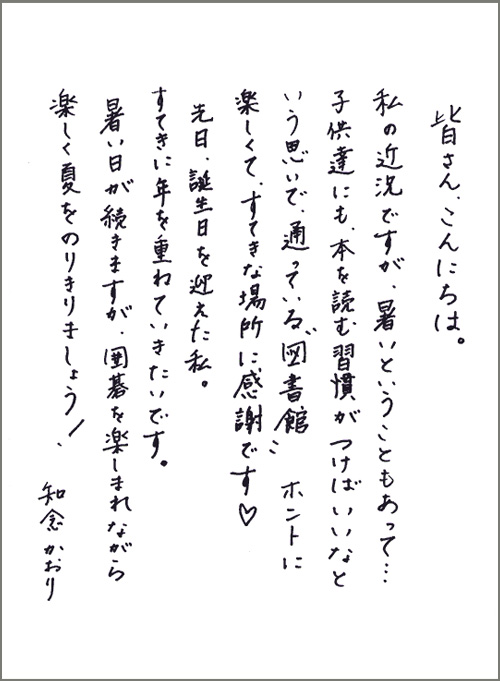 皆さん、こんにちは。
私の近況ですが、暑いということもあって…
子供達にも、本を読む習慣がつけばいいなと
いう思いで、通っている〝図書館〟ホントに
楽しくて、すてきな場所に感謝です♡
先日、誕生日を迎えた私。
すてきに年を重ねていきたいです。
暑い日が続きますが、囲碁を楽しまれながら
楽しく夏をのりきりましょう!
知念かおり